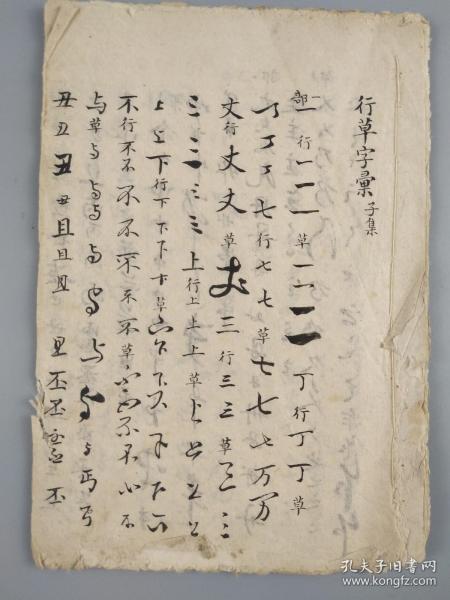 行草字彙 子集
一部 一 行 一 一 一 草 一 一 一 丁 行 丁 丁 草
丁 丁 丁 七 行 七 七 草 七 七 七 万
丈 行 丈 丈 草 丈 三 行 三 三 草 三 三
三 三 三 三 上 行 上 上 上 草 上 上 上 上
上 上 下 行 下 下 下 下 草 下 下 下 下 下 下
不 行 不 不 不 不 不 不 不 草 不 不 不 不 不
与 草 与 与 与 与 与 与 与 与 丐 丐
丑 丑 丑 丑 且 且 且 丕 丕 丕
孔夫子旧书网
www.kongfz.com